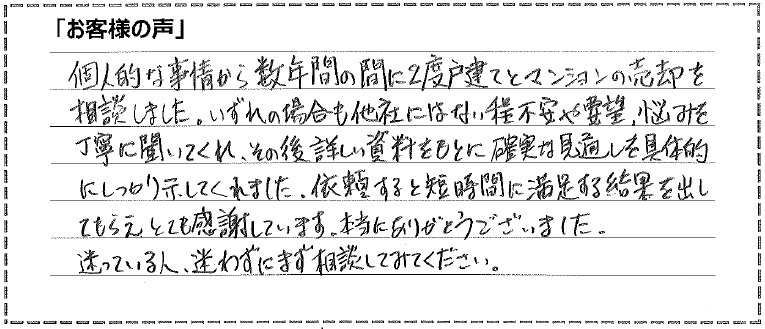 「お客様の声」
個人的な事情から数年間の間に2度戸建てとマンションの売却を
相談しました。いずれの場合も他社にはない程不安や要望、悩みを
丁寧に聞いてくれ、その後詳しい資料をもとに確実な見通しを具体的
にしっかり示してくれました。依頼すると短時間に満足する結果を出し
てもらえとても感謝しています。本当にありがとうございました。
迷っている人、迷わずにまず相談してみてください。